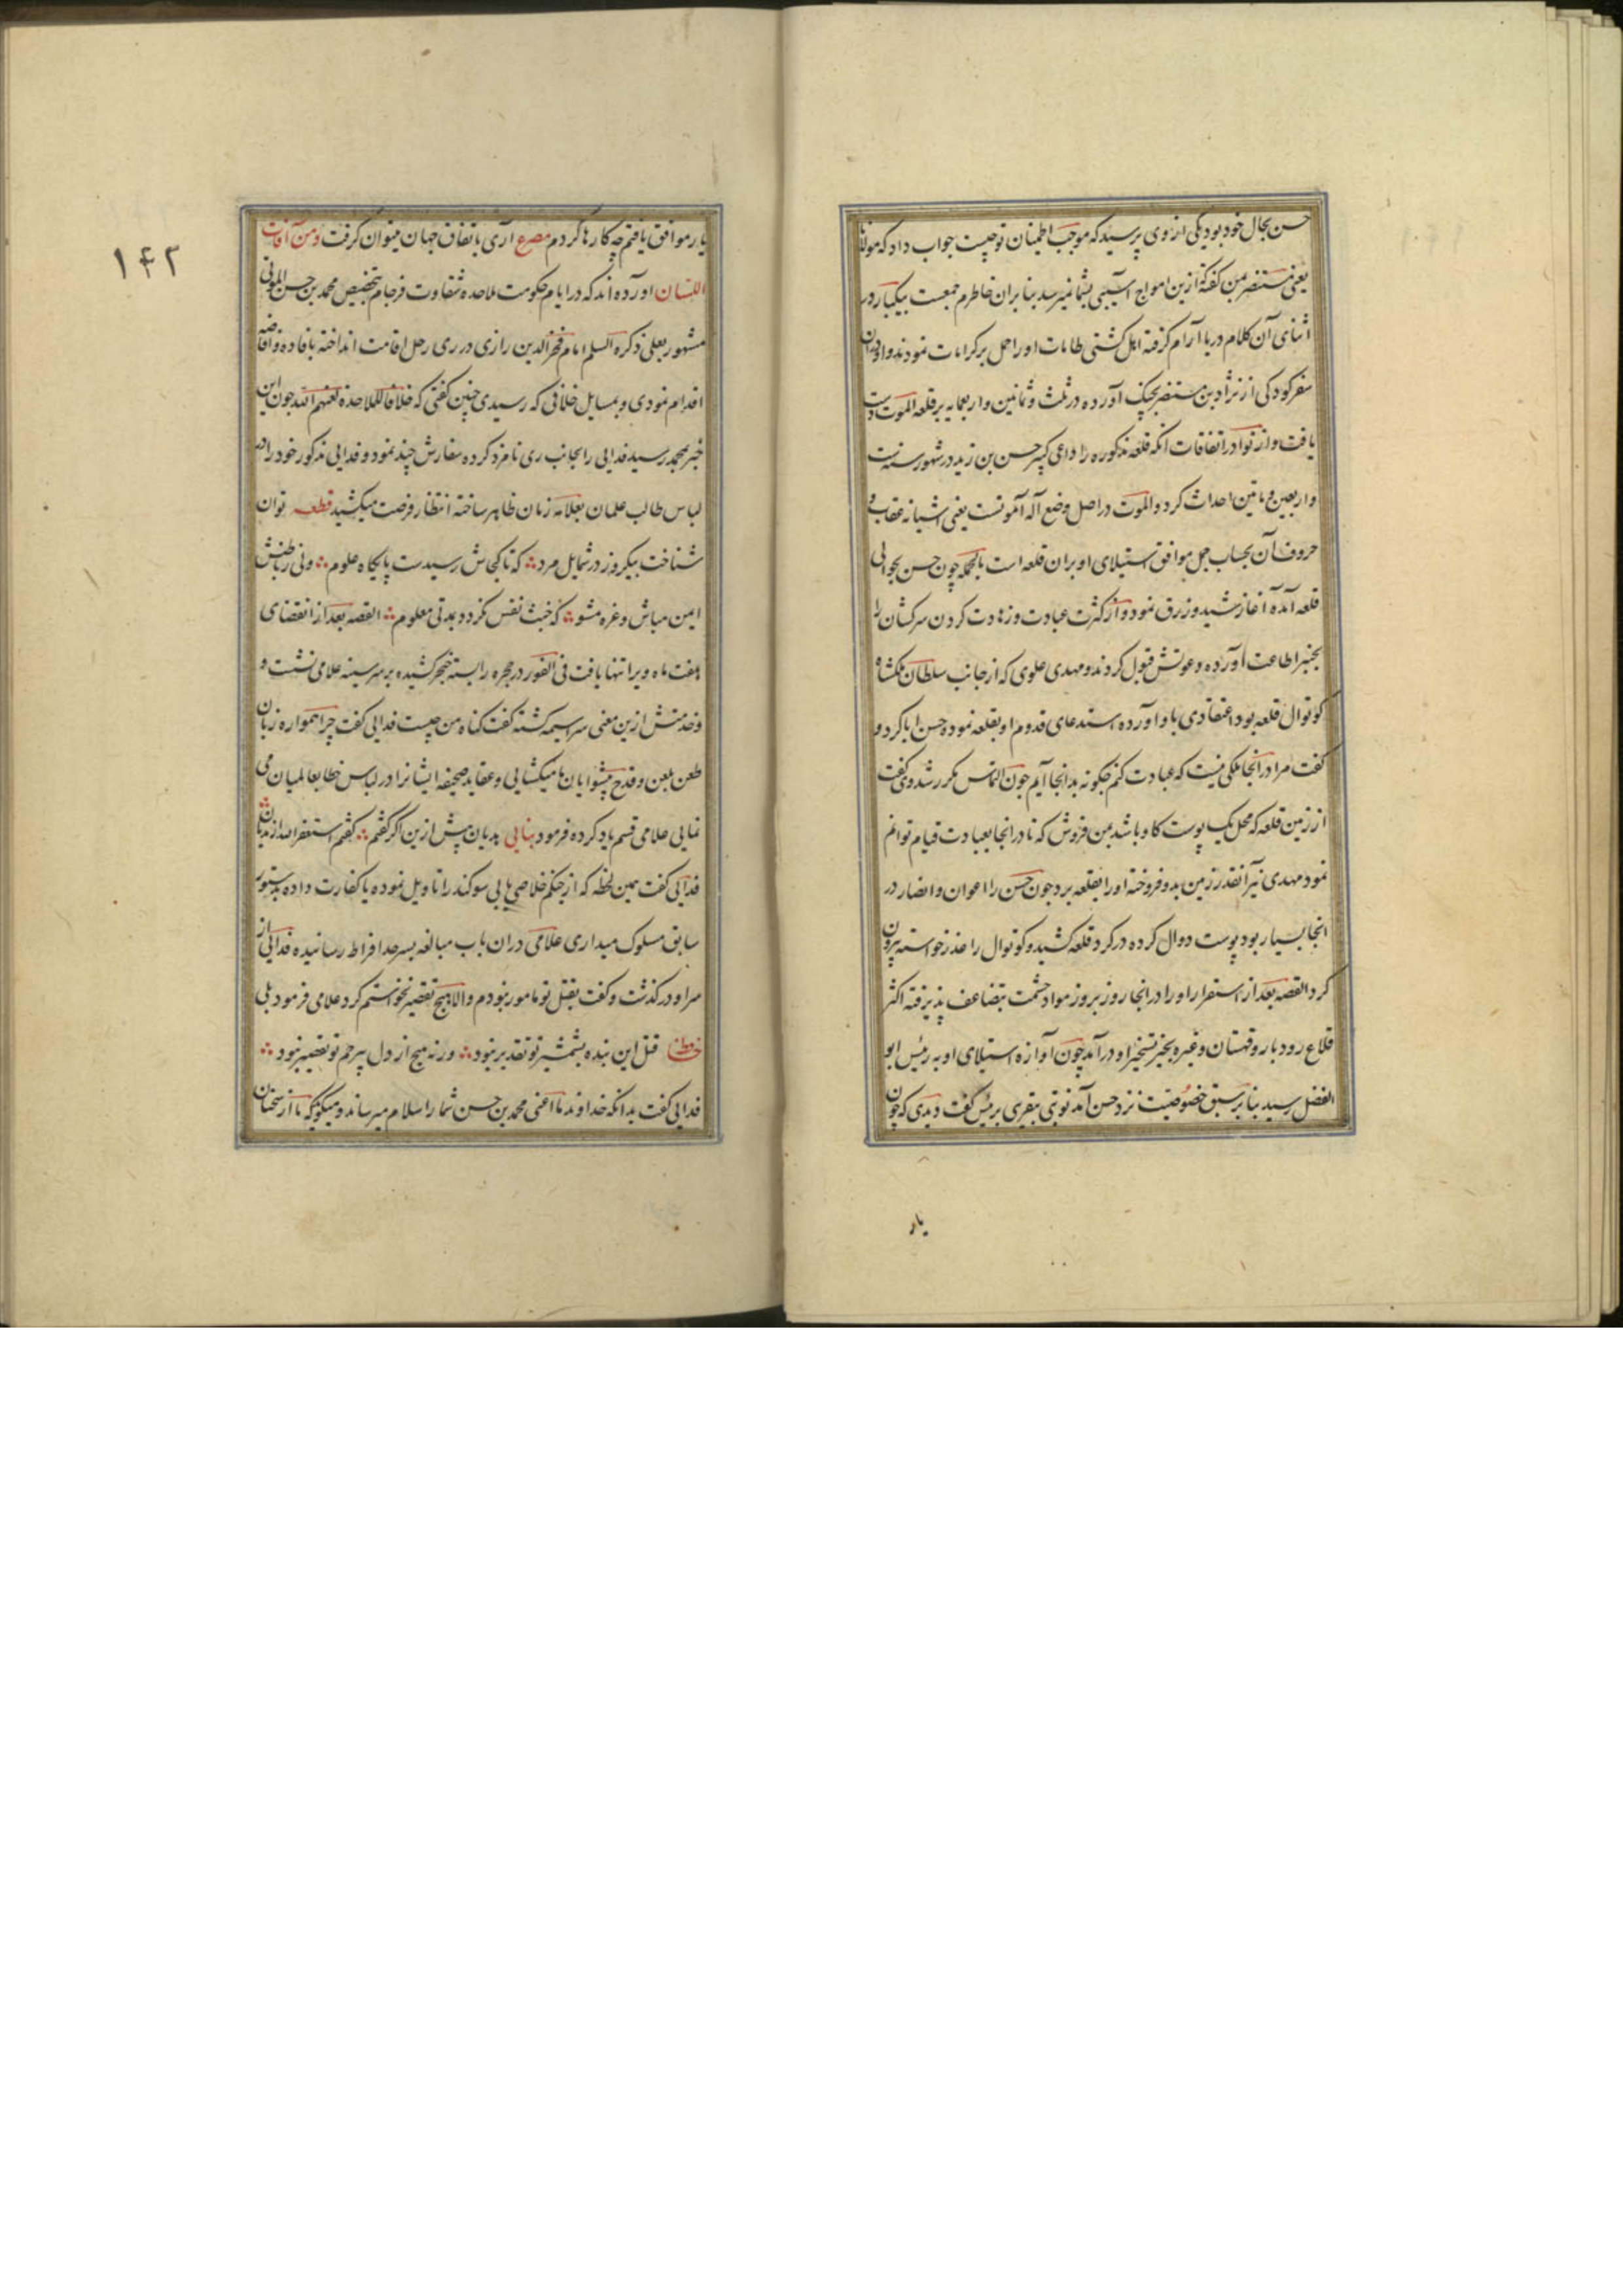 حسن بحال خود بود یکی از وی پرسید که موجب اطمینان تو چیست جواب داد که مولانا
یعنی مستنصر بمن گفته ازین امواج آسیبی بشما نمیرسد بنا بران خاطرم جمعست بیکبار در
اثنای آن کلام دریا آرام گرفته اهل کشتی طامات او را حمل بر کرامات نمودند و او دران
سفر کودکی از نژاد بن مستنصر بچنگ آورده در ثلث و ثمانین و اربعمایه بر قلعه الموت دست
یافت و از نوادر اتفاقات انکه قلعه مذکوره را داعی کبیر حسن بن زید در شهور سنه ست
و اربعین و مایتین احداث کرد و الموت در اصل وضع آله آموتست یعنی اشیانه عقاب و
حروف آن بحساب جمل موافق استیلای او بران قلعه است بالجمله چون حسن بحوالی
قلعه آمده آغاز شید و زرق نمود و از کثرت عبادت و زهادت گردن سرکشان را
بچنبر اطاعت آورده دعوتش قبول کردند و مهدی علوی که از جانب سلطان ملکشاه
کوتوال قلعه بود اعتقادی باو آورده استدعای قدوم او بقلعه نموده حسن ابا کرد و
گفت مرا در انجا ملکی نیست که عبادت کنم چگونه بدانجا آیم چون التماس مکرر شد وی گفت
از زمین قلعه که محل یک پوست گاو باشد بمن فروش که تا در انجا بعبادت قیام توانم
نمود مهدی نیز آنقدر زمین بدو فروخته او را بقلعه برد چون حسن را اعوان و انصار در
انجا بسیار بود پوست دوال کرده در گرد قلعه کشید و کوتوال را عذر خواسته بیرون
کرد القصه بعد از استقرار او را در انجا روز بروز مواد حشمت تضاعف پذیرفته اکثر
قلاع رودبار و قهستان و غیره بحیز تسخیر او در آمد چون آوازه استیلای او به رئیس ابو
الفضل رسید بنا بر سبق خصوصیت نزد حسن آمد نوبتی بتقریبی برئیس گفت دیدی که چون
یار
۱۴۲
یار موافق یافتم چه کارها کردم مصرع آری باتفاق جهان میتوان گرفت و من آفات
اللسان اورده اند که در ایام حکومت ملاحده شقاوت فرجام بتخصیص محمد بن حسن الموتی
مشهور بعلی ذکره السلم امام فخر الدین رازی در ری رحل اقامت انداخته بافاده و افاضه
اقدام نمودی و بمسایل خلافی که رسیدی چنین گفتی که خلافا للملاحده لعنهم الله چون این
خبر بمحمد رسید فدایی را بجانب ری نامزد کرده سفارش چند نمود و فدایی مذکور خود را در
لباس طالب علمان بعلامه زمان ظاهر ساخته انتظار فرصت میکشید قطعه توان
شناخت بیکروز در شمایل مرد که تا کجاش رسیدست پایگاه علوم ولی ز باطنش
ایمن مباش و غره مشو که خبث نفس نگردد بمدتی معلوم القصه بعد از انقضای
هفت ماه ویرا تنها یافت فی الفور در حجره را بسته خنجر کشیده بر سر سینه علامی نشست و
وخدمتش ازین معنی سراسیمه گشته گفت گناه من چیست فدایی گفت چرا همواره زبان
طعن بلعن و قدح پیشوایان ما میکشایی و عقاید صحیفه ایشانرا در لباس خطا بعالمیان می
نمایی علامی قسم یاد کرده فرمود بنایی بدیان پیش ازین اگر گفتم گفتم استغفر الله از
فدایی گفت همین لحظه که از چنگم خلاصی یابی سوگند را تاویل نموده یا کفارت داده بدستور
سابق مسلوک میداری علامی دران باب مبالغه بسرحد افراط رسانیده فدایی از
سر او در گذشت و گفت بقتل تو مامور نبودم و الا هیچ تقصیر نخواستم کرد علامی فرمود بلی
حافظ قتل این بنده بشمشیر تو تقدیر نبود ورنه هیچ از دل بیرحم تو تقصیر نبود
فدایی گفت بدانکه خداوند ما اعنی محمد بن حسن شما را سلام میرساند و میگوید که ما از سخنان